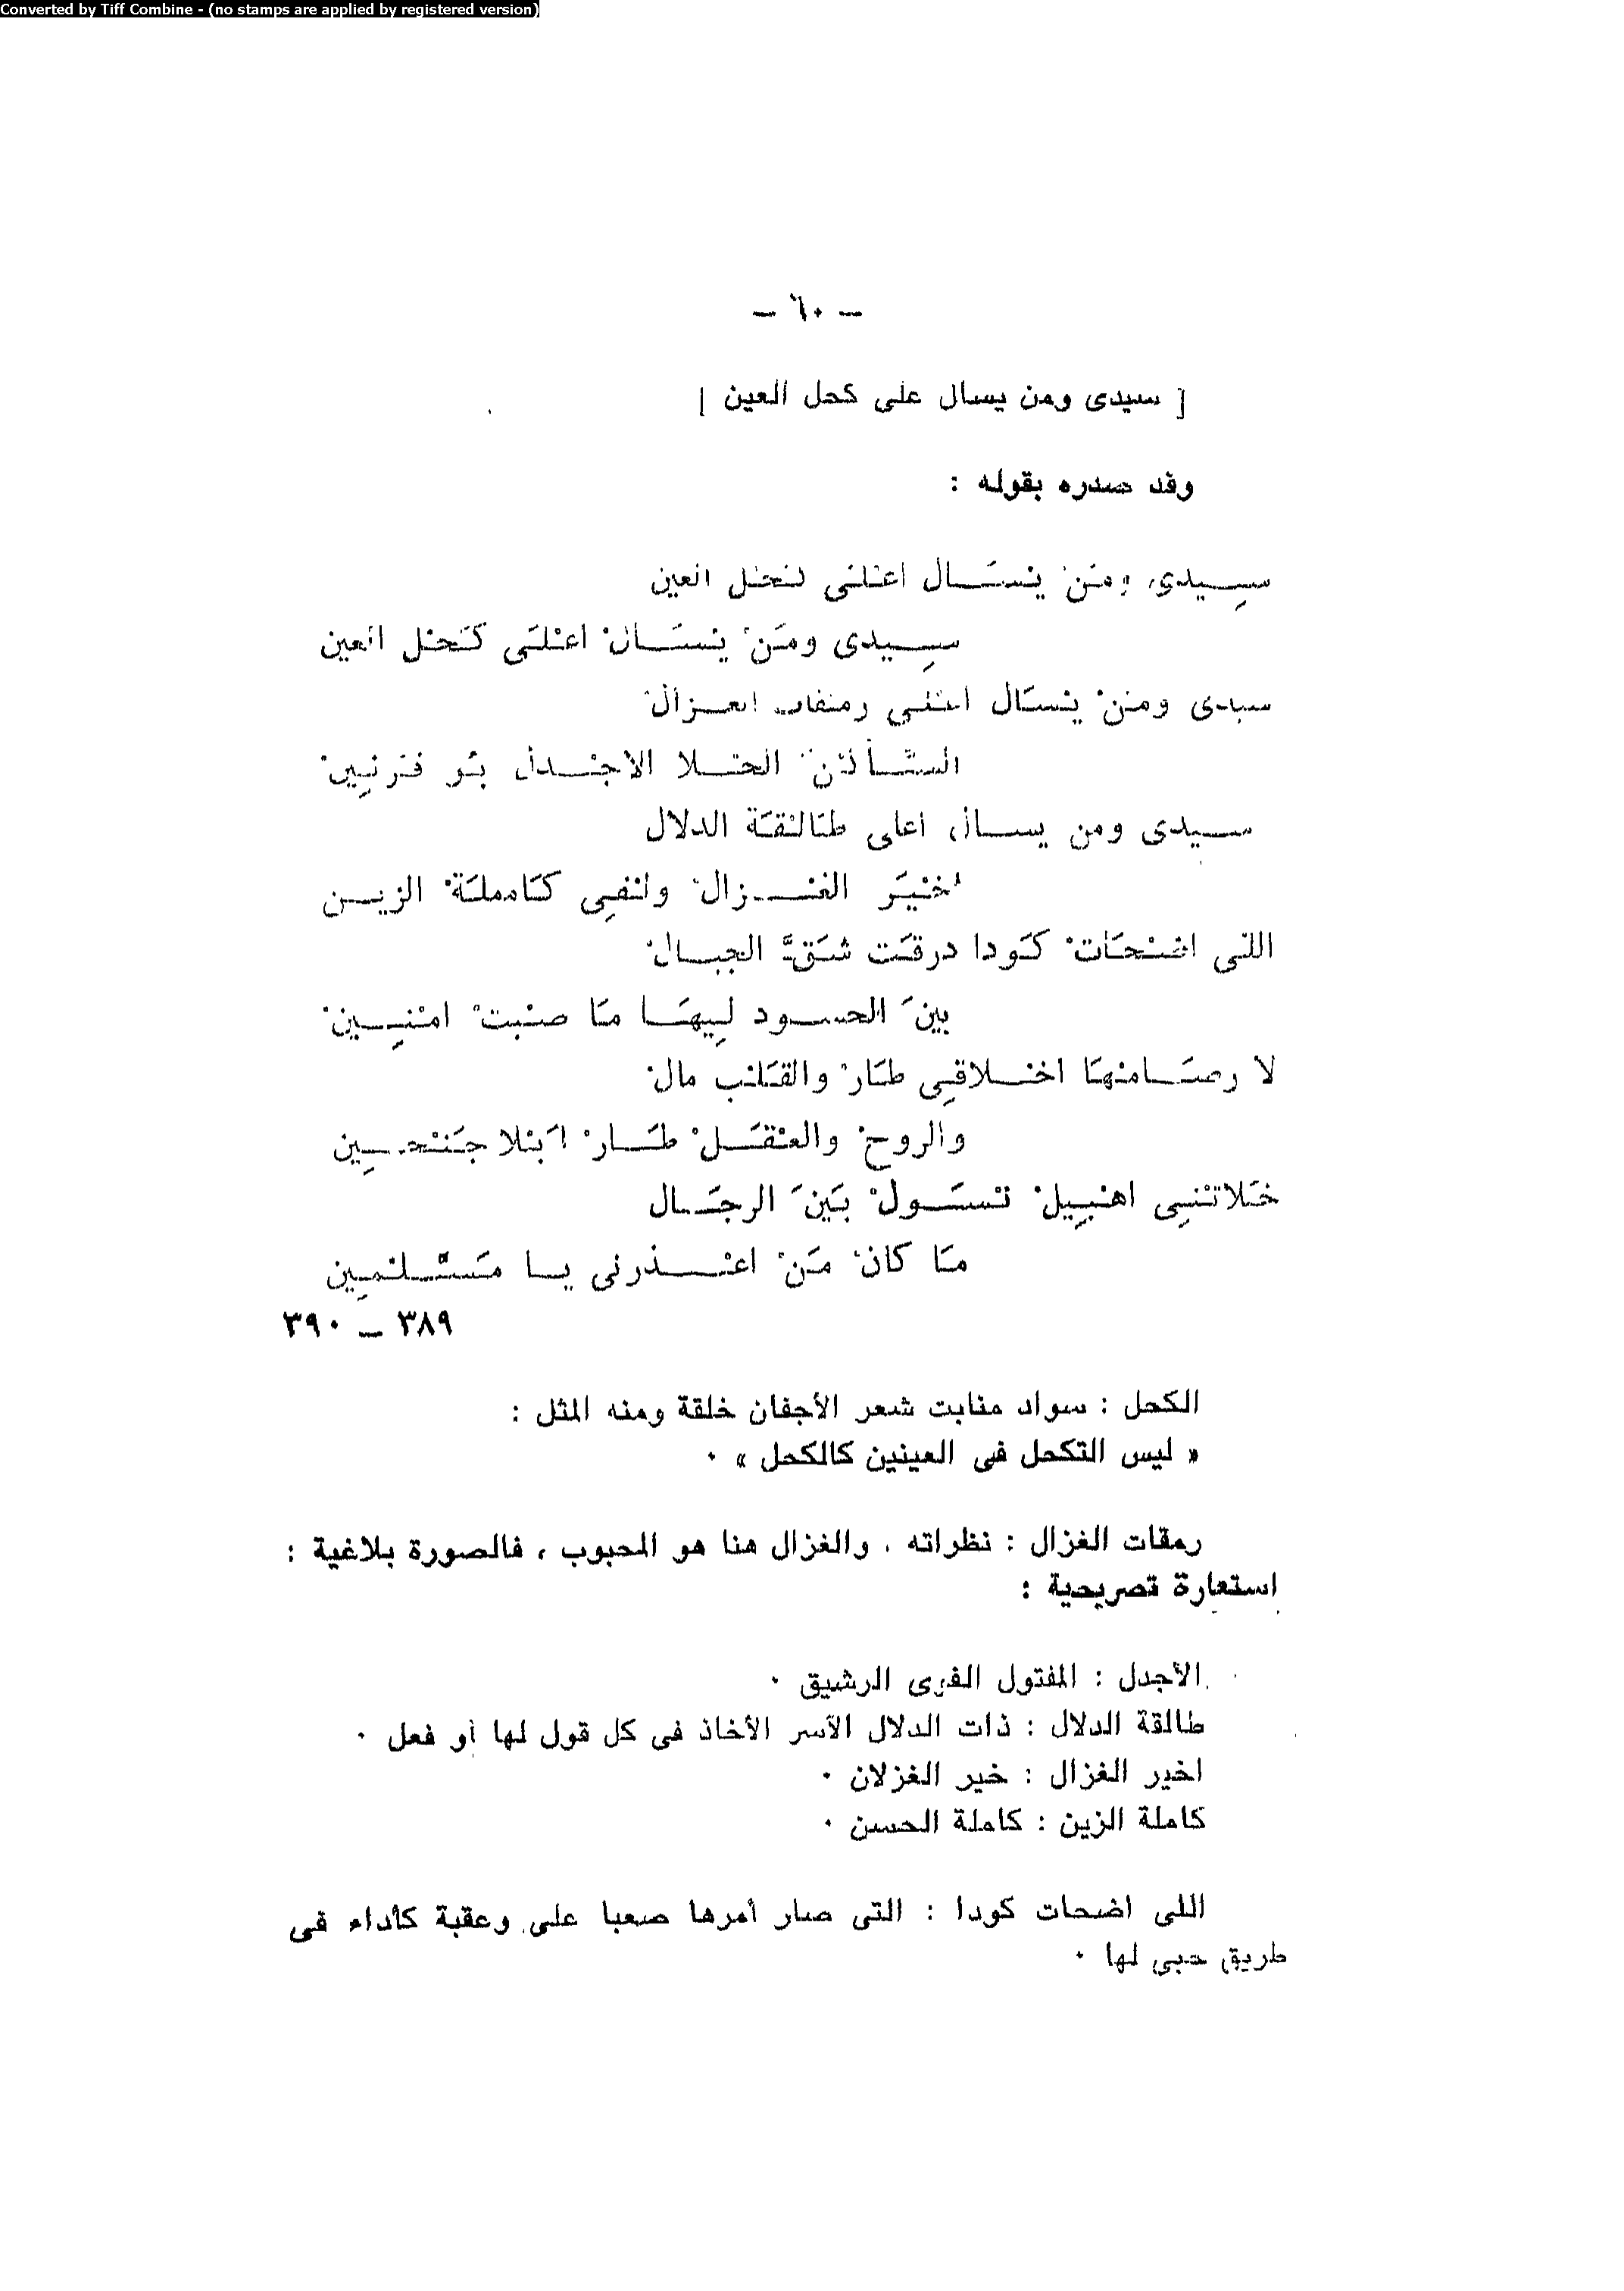 Converted by Tiff Combine - (no stamps are applied by registered version)
— ٦٠ —
[ سيدى ومن يسال على كحل العين ]
وقد صدره بقوله :
سيدى ومن يسال اعلى كحل العين
سيدى ومن يسال اعلى كحل العين
سيدى ومن يسال اعلى رمقات الغزال
الحلا الاجدل بو قرنين
سيدى ومن يسال اعلى طالقة الدلال
اخير الغزال والفى كاملة الزين
اللى اضحات كودا درقت شق الجبال
بين الحسود ليها ما صبت امنين
لا رصامنها اخلاقى طار والقلب مال
والروح والعقل طار ابلا جنحين
خلاتنى اهبيل نسول بين الرجال
ما كان من اعذرنى يا مسلمين
٣٨٩ — ٣٩٠
الكحل : سواد منابت شعر الأجفان خلقة ومنه المثل :
« ليس التكحل فى العينين كالكحل » ٠
رمقات الغزال : نظراته ، والغزال هنا هو المحبوب ، فالصورة بلاغية :
استعارة تصريحية :
الأجدل : المفتول القوى الرشيق ٠
طالقة الدلال : ذات الدلال الآسر الأخاذ فى كل قول لها أو فعل ٠
اخير الغزال : خير الغزلان ٠
كاملة الزين : كاملة الحسن ٠
اللى اضحات كودا : التى صار أمرها صعبا على وعقبة كأداء فى
طريق حبى لها ٠